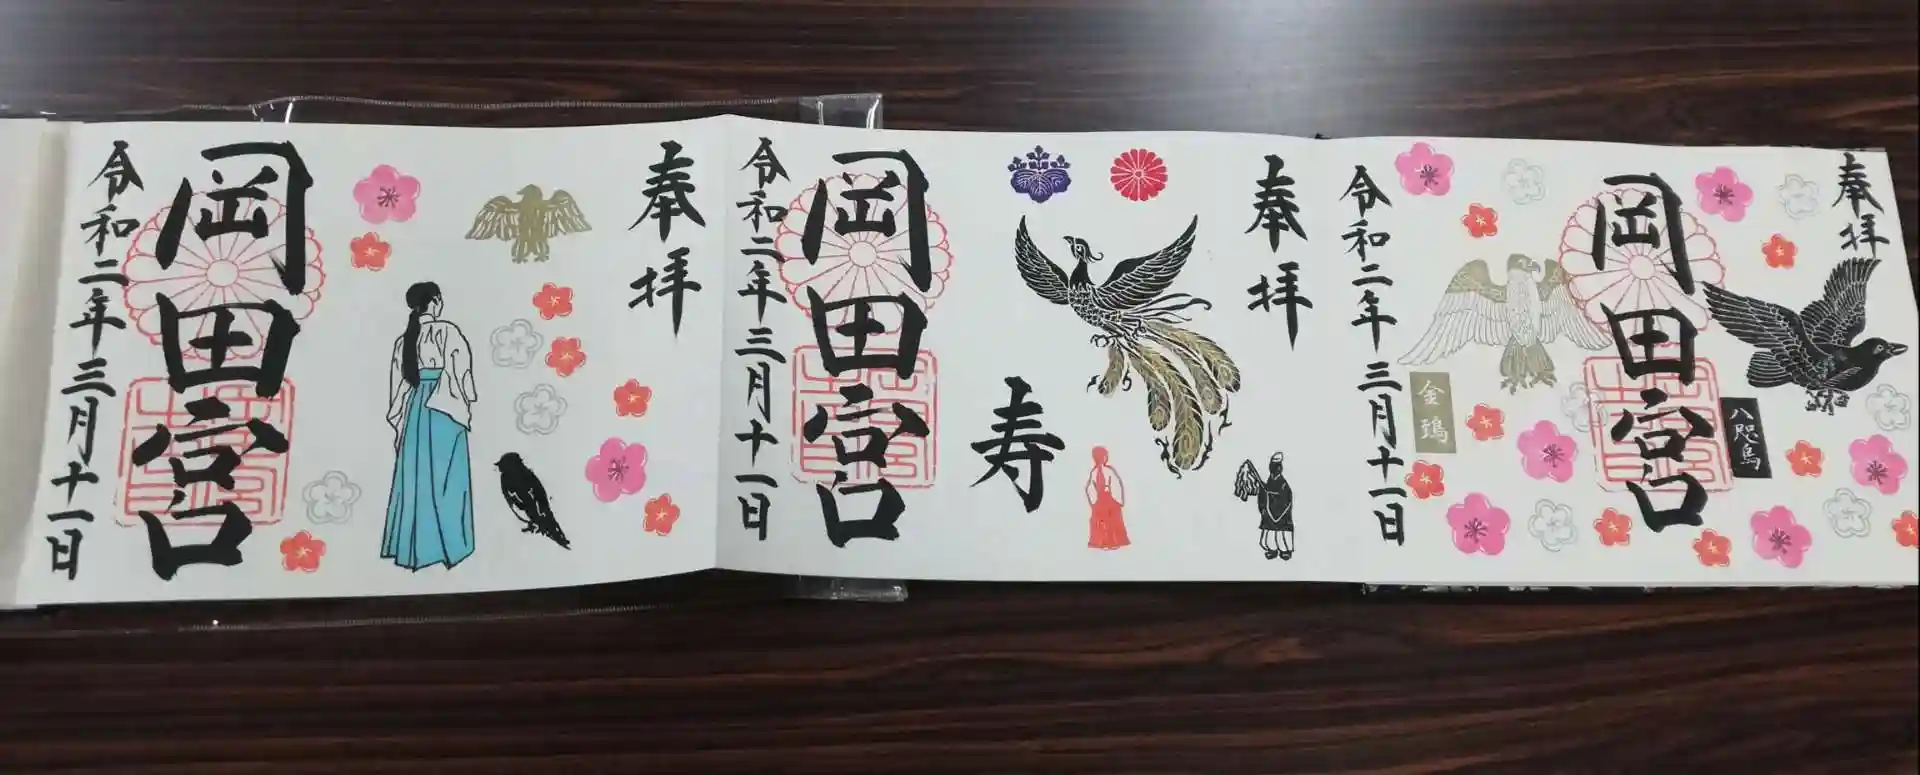 奉拝
八咫烏
岡田宮
金鵄
令和二年三月十一日
奉拝
寿
岡田宮
令和二年三月十一日
奉拝
岡田宮
令和二年三月十一日